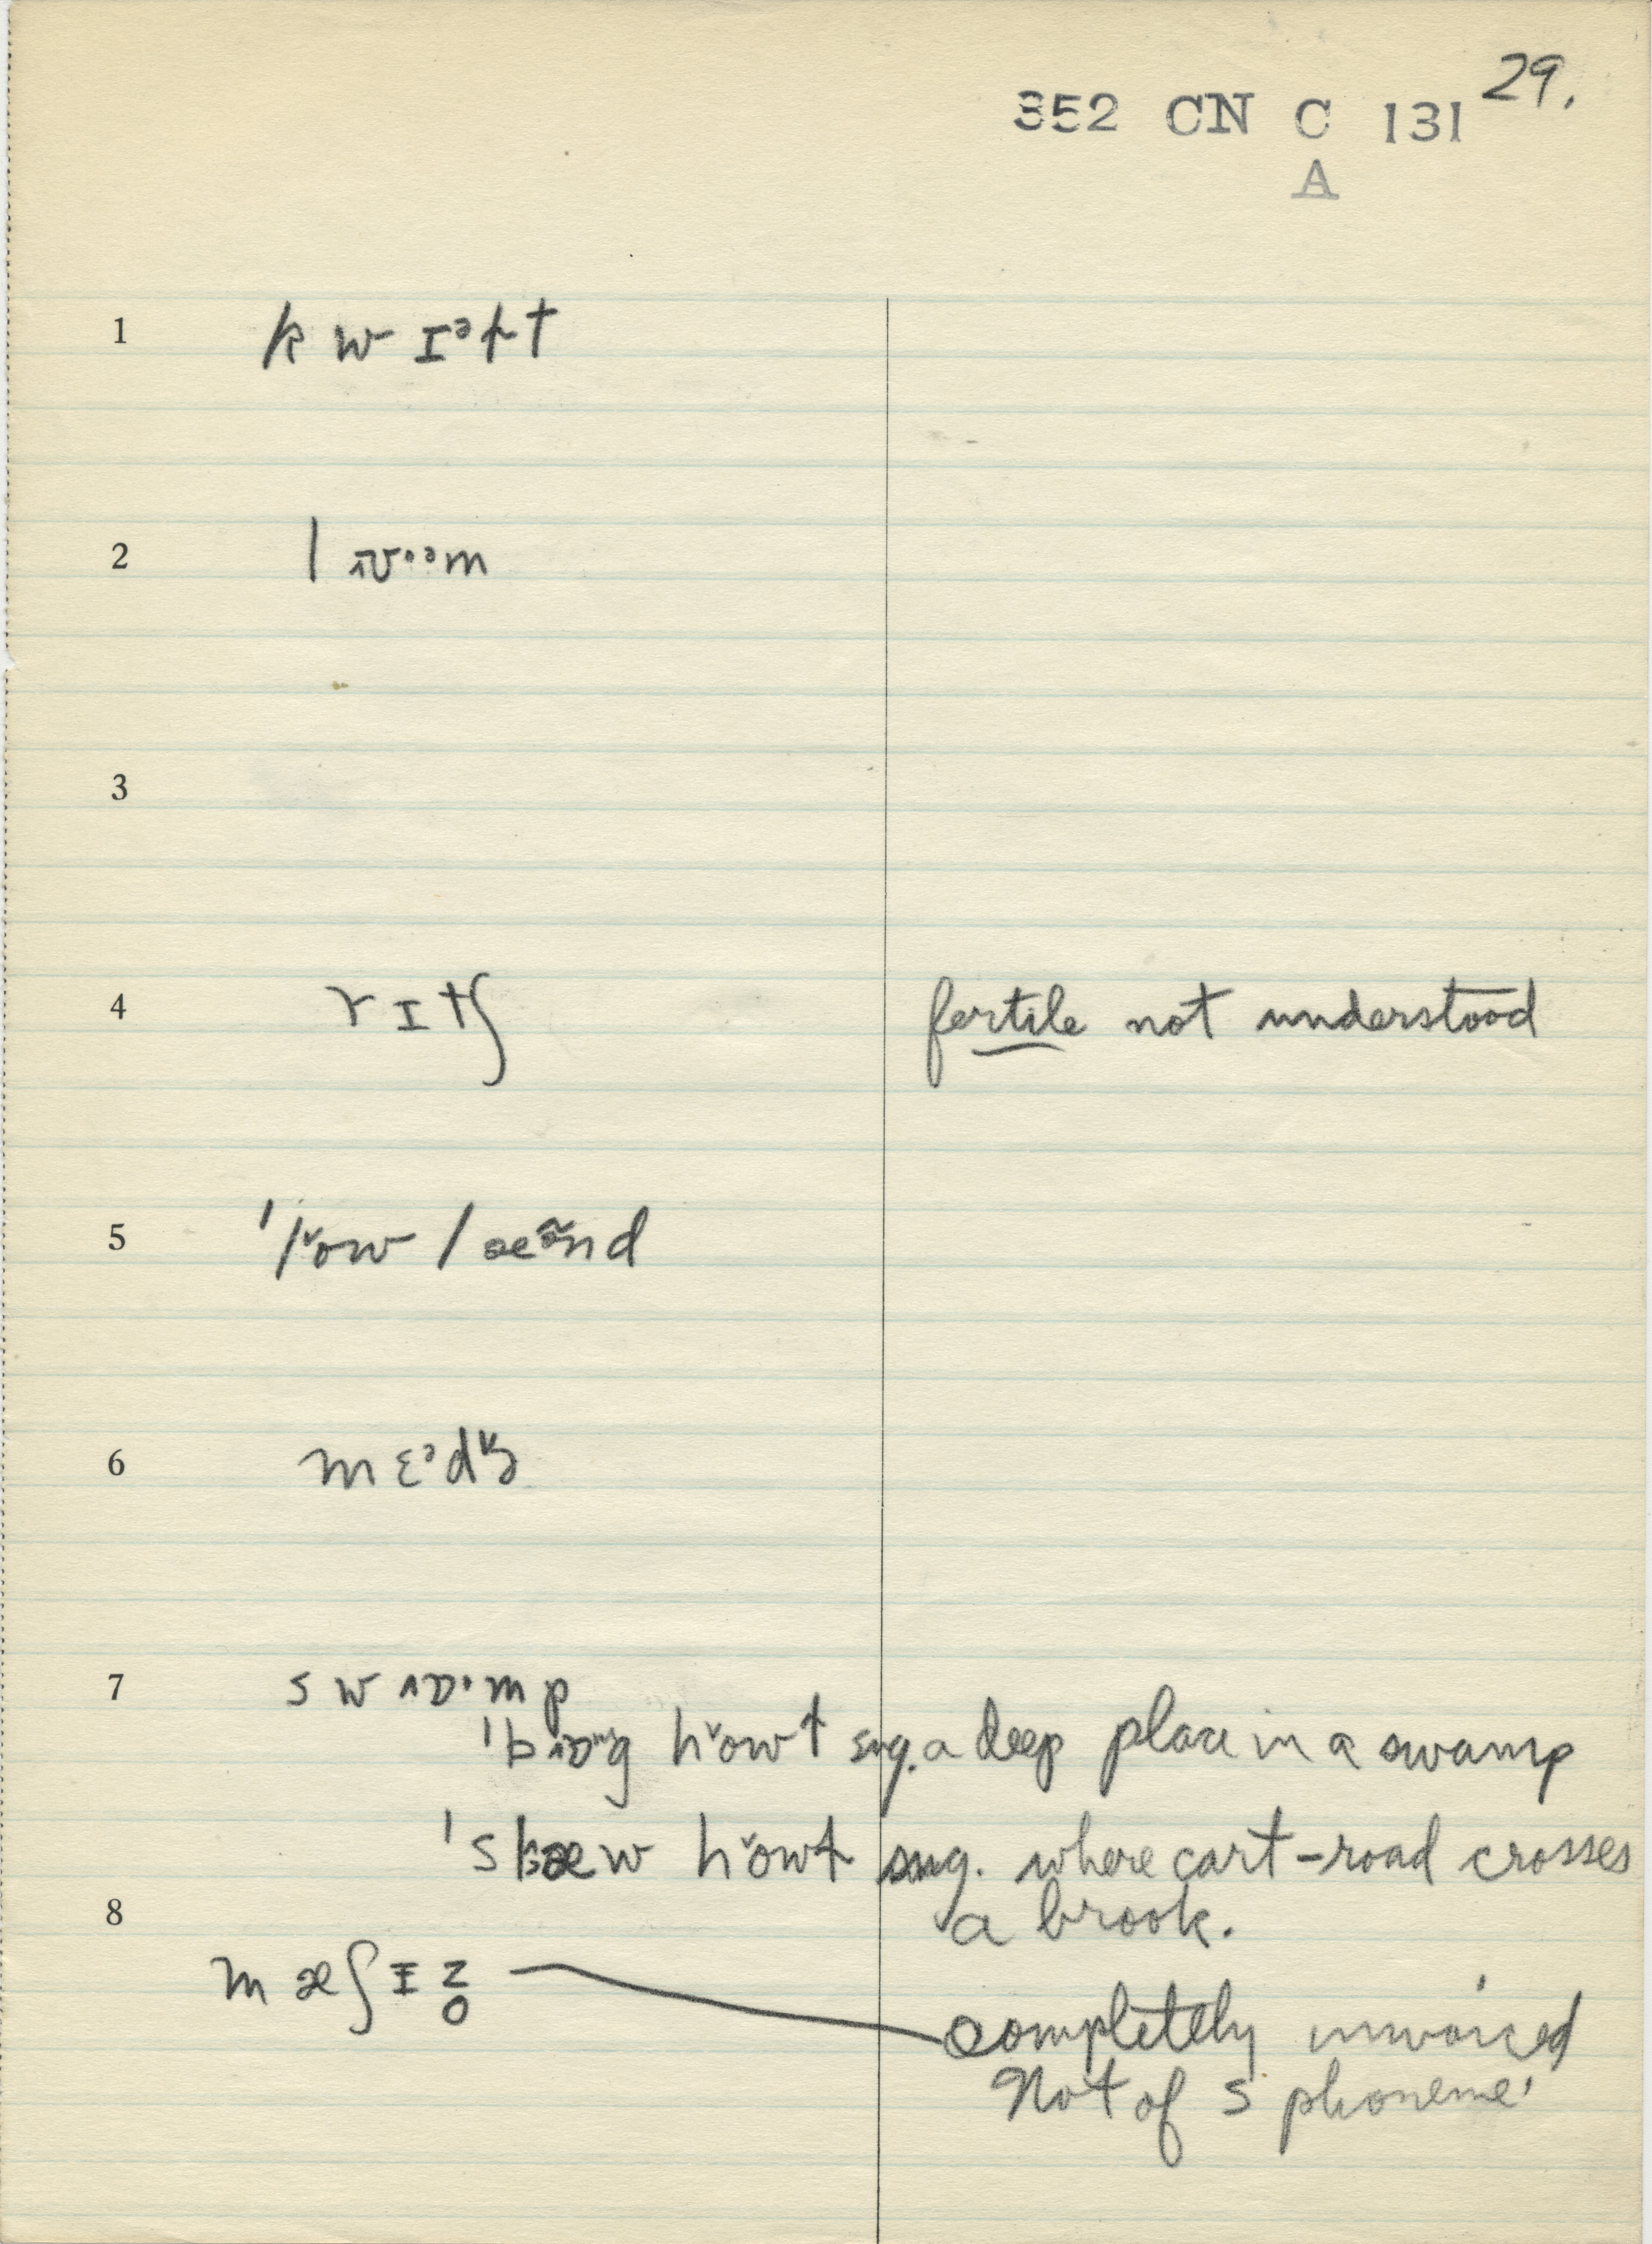 29.
352 CN C 131
A
1 k w ɪᵊft
2 l ɒ·ᵊm
3
4 r ɪ tʃ fertile not understood
5 ˈlow l æə̃nd
6 m ɛᵊdɪz
7 s w ɒ·m p
ˈbɒg howl sng. a deep place in a swamp
ˈslæw howl sng. where cart-road crosses
a brook.
8
m æʃɪz̥ completely unvoiced
Not of s phoneme